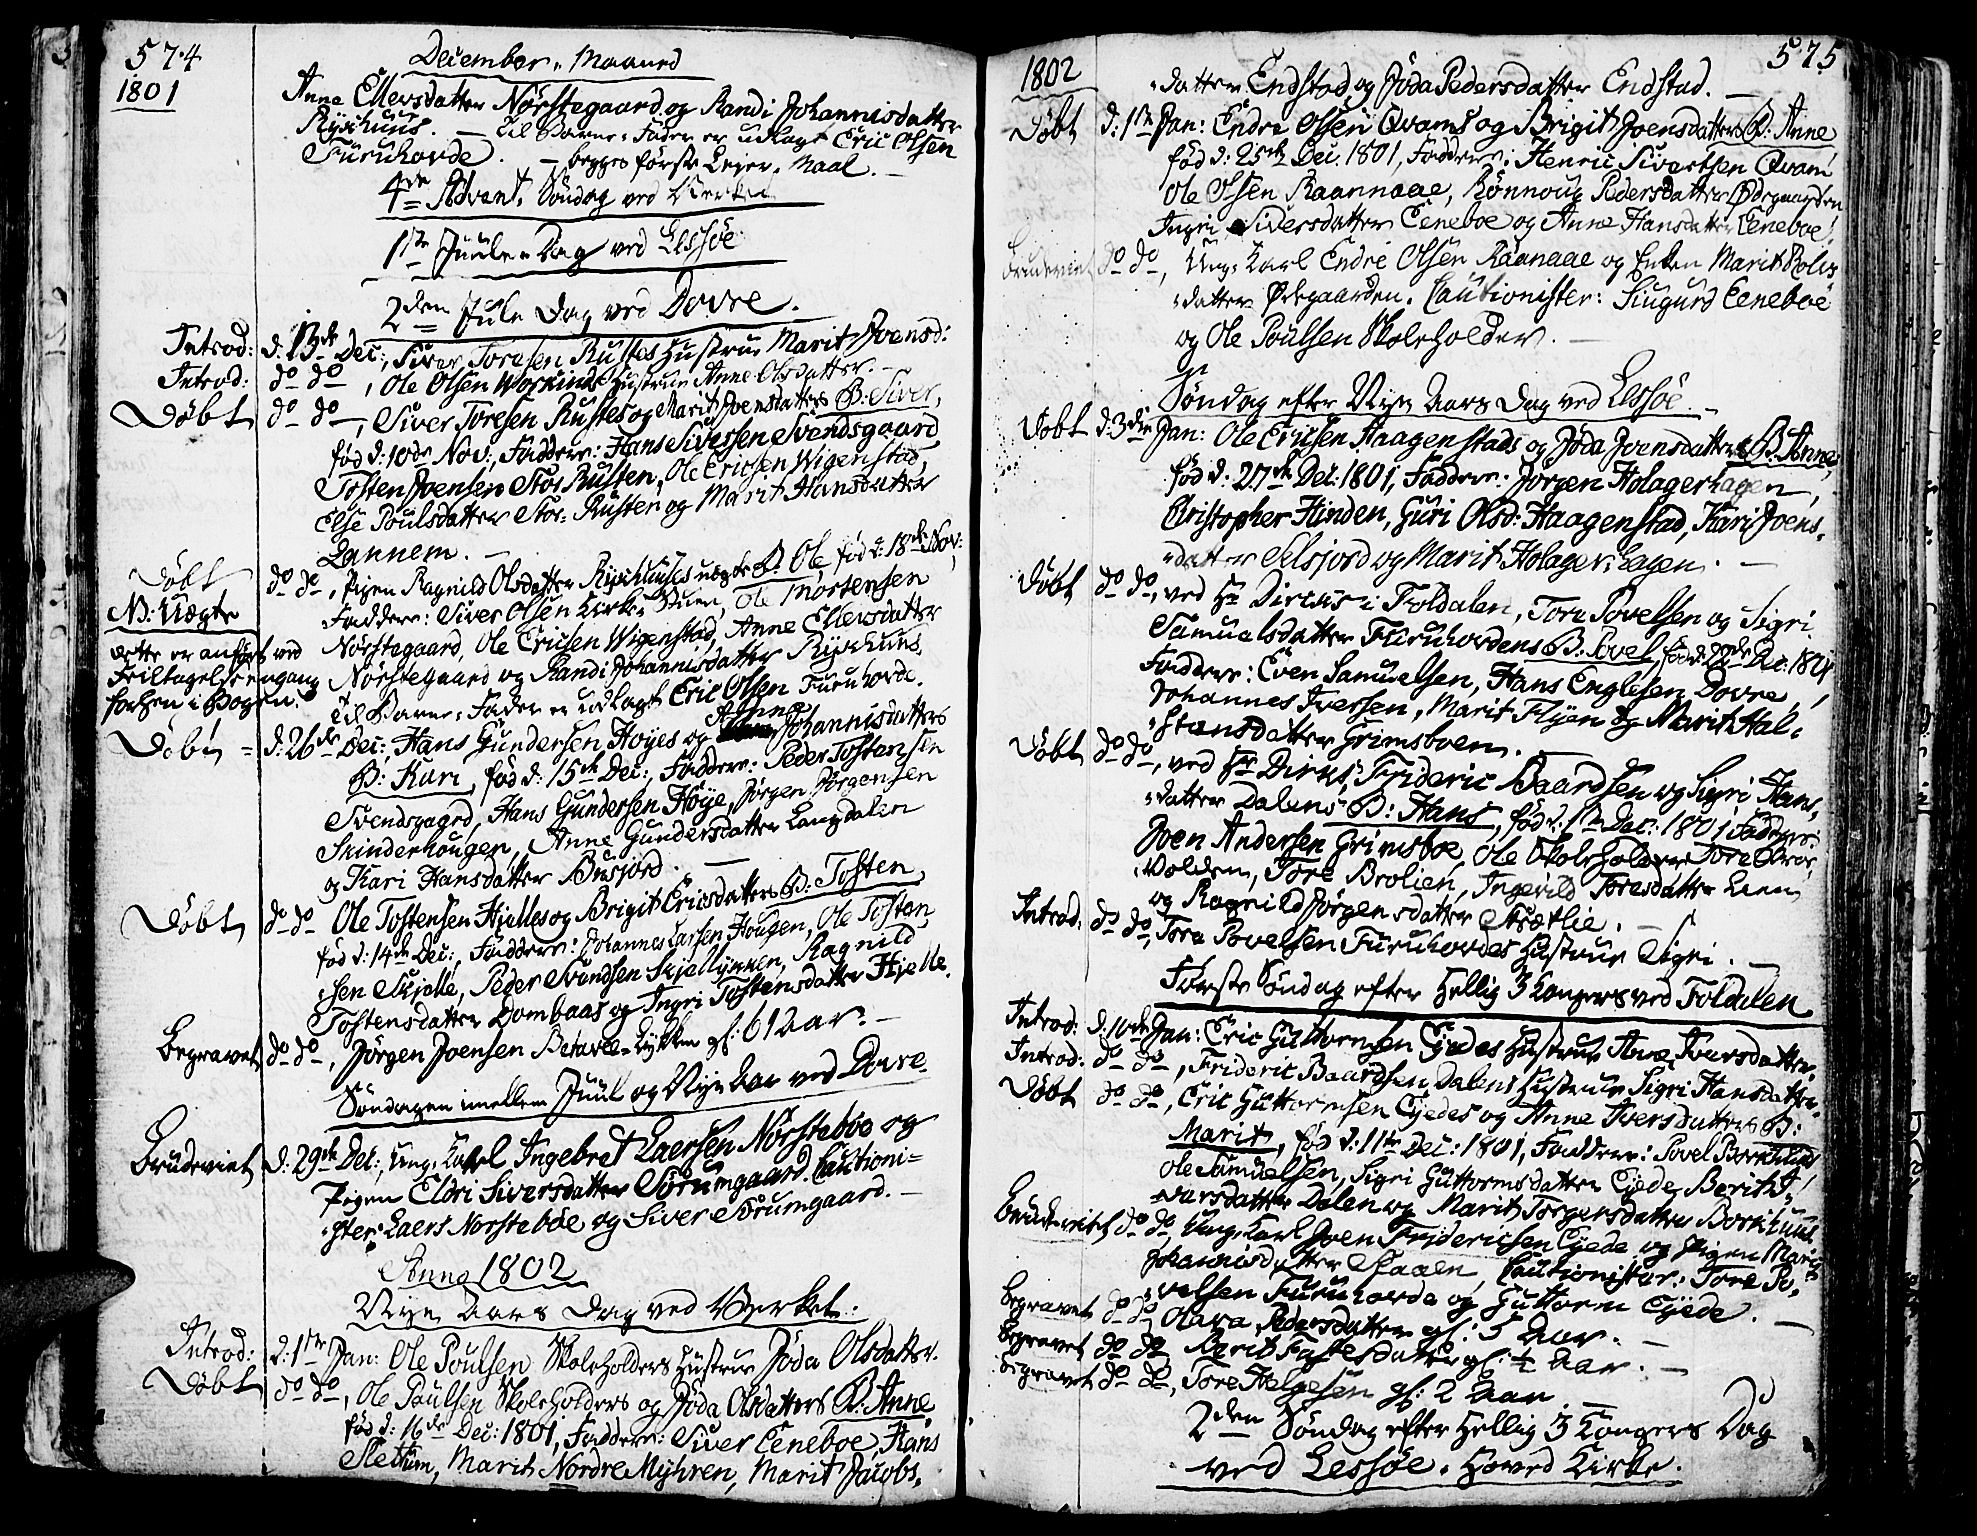 574
1801
December Maaned
Anne Ellevsdatter Nörstegaard og Randi Johannisdatter
Ryschuus. — til Barne-Fader er udlagt Eric Olsen
Furuhovde. — begges første Leier-Maal. —
4de Advent Søndag ved Kierken
1ste Juule-Dag ved Lessøe
2den Jule Dag ved Dovre.
Introd: d: 13de Dec:, Siver Toresen Rustes Hustrue Marit Joensd:
Introd: do do, Ole Olsen Workinds Hustrue Anne Olsdatter. —
Döbt do do —, Siver Toresen Rustes og Marit Joensdatters B: Siver,
fød d: 10de Nov:, Faddere: Hans Siversen Svendsgaard,
Tosten Joensen Stor Rusten, Ole Ericsen Wigenstad,
Else Poulsdatter Stor-Rusten og Marit Hansdatter
Lannem. —
Döbt do do, Pigen Ragnild Olsdatter Ryschuses uægte B: Ole, fød d: 18de Nov:
N: Uægte Faddere: Siver Olsen Kirke-Stuen, Ole Mortensen
Nörstegaard, Ole Ericsen Wigenstad, Anne Ellevsdatter
dette er anført ved
Nörstegaard og Randi Johannisdatter Ryschuus,
Feiltagelse engang
forhen i Bogen.
Til Barne-Fader er udlagt Eric Olsen Furuhovde.
Döbt = d: 26de Dec:, Hans Gundersen Hoyes og Anne Johannisdatters
B: Kari, fød d: 15de Dec:, Faddere: Peder Tostensen
Svendsgaard, Hans Gundersen Høye, Jörgen Jörgensen
Skinderhougen, Anne Gundersdatter Langdalen
og Kari Hansdatter Busjord. —
Döbt do do Ole Tostensen Hjelles og Brigit Ericsdatters B: Tosten,
fød d: 14de Dec:, Faddere: Johannes Larsen Hougen, Ole Tosten-
-sen Skjelle, Peder Svendsen Skjellykken, Ragnild
Tostensdatter Dombaas og Ingri Tostensdatter Hjelle.
Begravet do do, Jörgen Joensen gl: 61 Aar. —
Søndagen imellem Juul og Nyt Aar ved Dovre.
Brudeviet d: 29de Dec:, Ung-Karl Ingebret Laersen Nörsteböe og
Pigen Eldri Siversdatter Sørumgaard. Cautioni=
-ster: Laers Norsteböe og Siver Sörumgaard. —
Anno 1802
Nyt Aars Dag ved Werket:
Introd: d: 1ste Jan: Ole Poulsen Skoleholders Hustrue Jöda Olsdatter.
Döbt do do, Ole Paulsen Skoleholders og Jöda Olsdatters B: Anne,
fød d: 16de Dec: 1801, Faddere: Siver Eeneboe, Hans
Slethum, Marit Nordre Myhren, Marit Jacobs-
575
1802
-datter Endstad og Jöda Pedersdatter Endstad. —
Döbt d: 1ste Jan: Endre Olsen Qvams og Brigit Joensdatters B: Anne
fød d: 25de Dec. 1801, Faddere: Henric Sivertsen Qvam
Ole Olsen Raannaae, Rönnoug Pedersdatter Ødegaarden
Ingri Siversdatter Eeneboe og Anne Hansdatter Eeneboe.
Brudeviet do do, Ung-Karl Endre Olsen Raanaae og Enken Marit Pols
-datter Ødegaarden. Cautionister: Siugurd Eeneboe
og Ole Poulsen Skoleholder. —
Søndag efter Nyt Aars Dag ved Lessøe —
Döbt d: 3die Jan: Ole Ericsen Haagenstads og Jøda Joensdatters B: Anne,
fød d: 27de Dec: 1801, Faddere: Jörgen Holagerhagen,
Christopher Hinden, Guri Olsd: Haagenstad, Kari Joens-
-datter Selsjord og Marit Holager-Hagen. —
Döbt do do, ved Hr Dircks i Foldalen, Tore Povelsen og Sigri
Samuelsdatter Furuhovdens B: Povel, fød d: Dec: 1801
Faddere: Even Samuelsen, Hans Englesen Dovre,
Johannes Iversen, Marit Flyen og Marit Hal-
-stensdatter Grimsboen. —
Döbt do do, ved Hr Dirks, Frideric Baardsen og Sigri Hans-
-datter Dalens B: Hans, fød d: 1ste Dec: 1801 Faddere:
Joen Andersen Grimsboe, Ole Skoleholder Tore
-volden, Tore Brolien, Ingevild Toresdatter Lien
og Ragnild Jörgensdatter Strætlie. —
Introd: do do, Tore Povelsen Furuhovdes Hustrue Sigri. —
Første Søndag efter Hellig 3 Konger ved Foldalen
Introd: d: 10de Jan: Eric Guttormsen Eyedes Hustrue Anne Iversdatter.
Introd: do do, Frideric Baardsen Dalens Hustrue Sigri Hansdatter.
Döbt do do, Eric Guttormsen Eyedes og Anne Iversdatters B:
Marit, fød d: 11te Dec: 1801, Faddere: Povel Borkhuus
Ole Samuelsen, Sigri Guttormsdatter Eyede, Berit I-
-varsdatter Dalen og Marit Torgersdatter Borkhuus.
Brudeviet do do, Ung-Karl Joen Fridericsen Eyede og Pigen Marit
Johannisdatter Skaaen, Cautionister: Tore Po-
-velsen Furuhovde og Guttorm Eyede. —
Begravet do do, Olava Pedersdatter gl: 5 Aar. —
Begravet do do Berit gl: ½ Aar. —
Begravet do do, Tore Helgesen gl: 2 Aar
2den Søndag efter Hellig 3 Kongers Dag
ved Lessøe. Hoved Kirke.